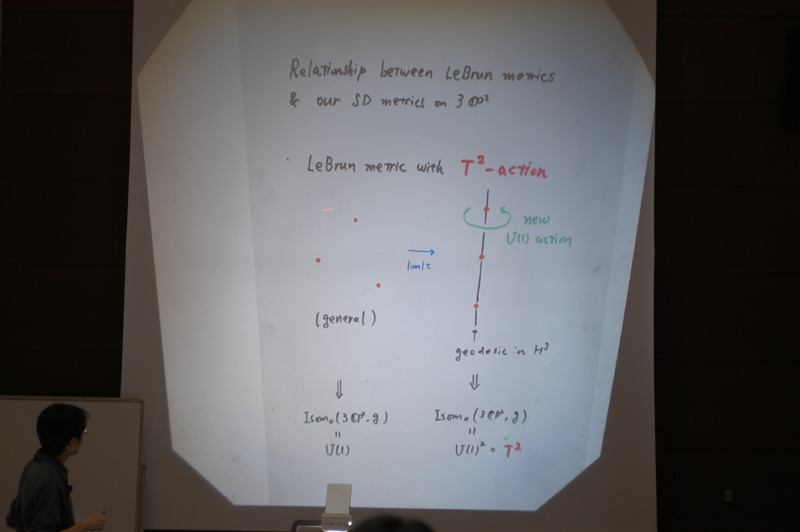 Relationship between LeBrun metrics
& our SD metrics on 3ℂP²
LeBrun metric with T²-action
new
U(1) action
limit
(general)
geodesic in H³
⇓ ⇓
Isom₀(3ℂP², g) Isom₀(3ℂP², g)
= =
U(1) U(1)² = T²